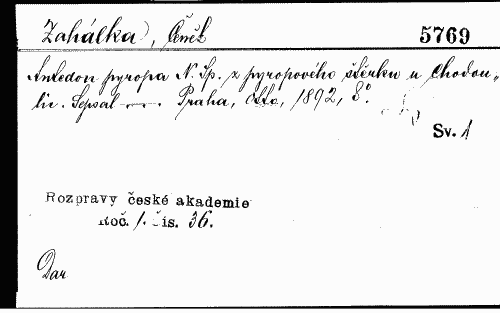 Zahálka, Čeněk
5769
Antedon pyropa N. Sp. z pyropového štěrku u Chodou-
lic. Sepsal —. Praha, Otto, 1892, 8°.
Sv. 1
Rozpravy české akademie
Roč. 1. čis. 36.
Dar